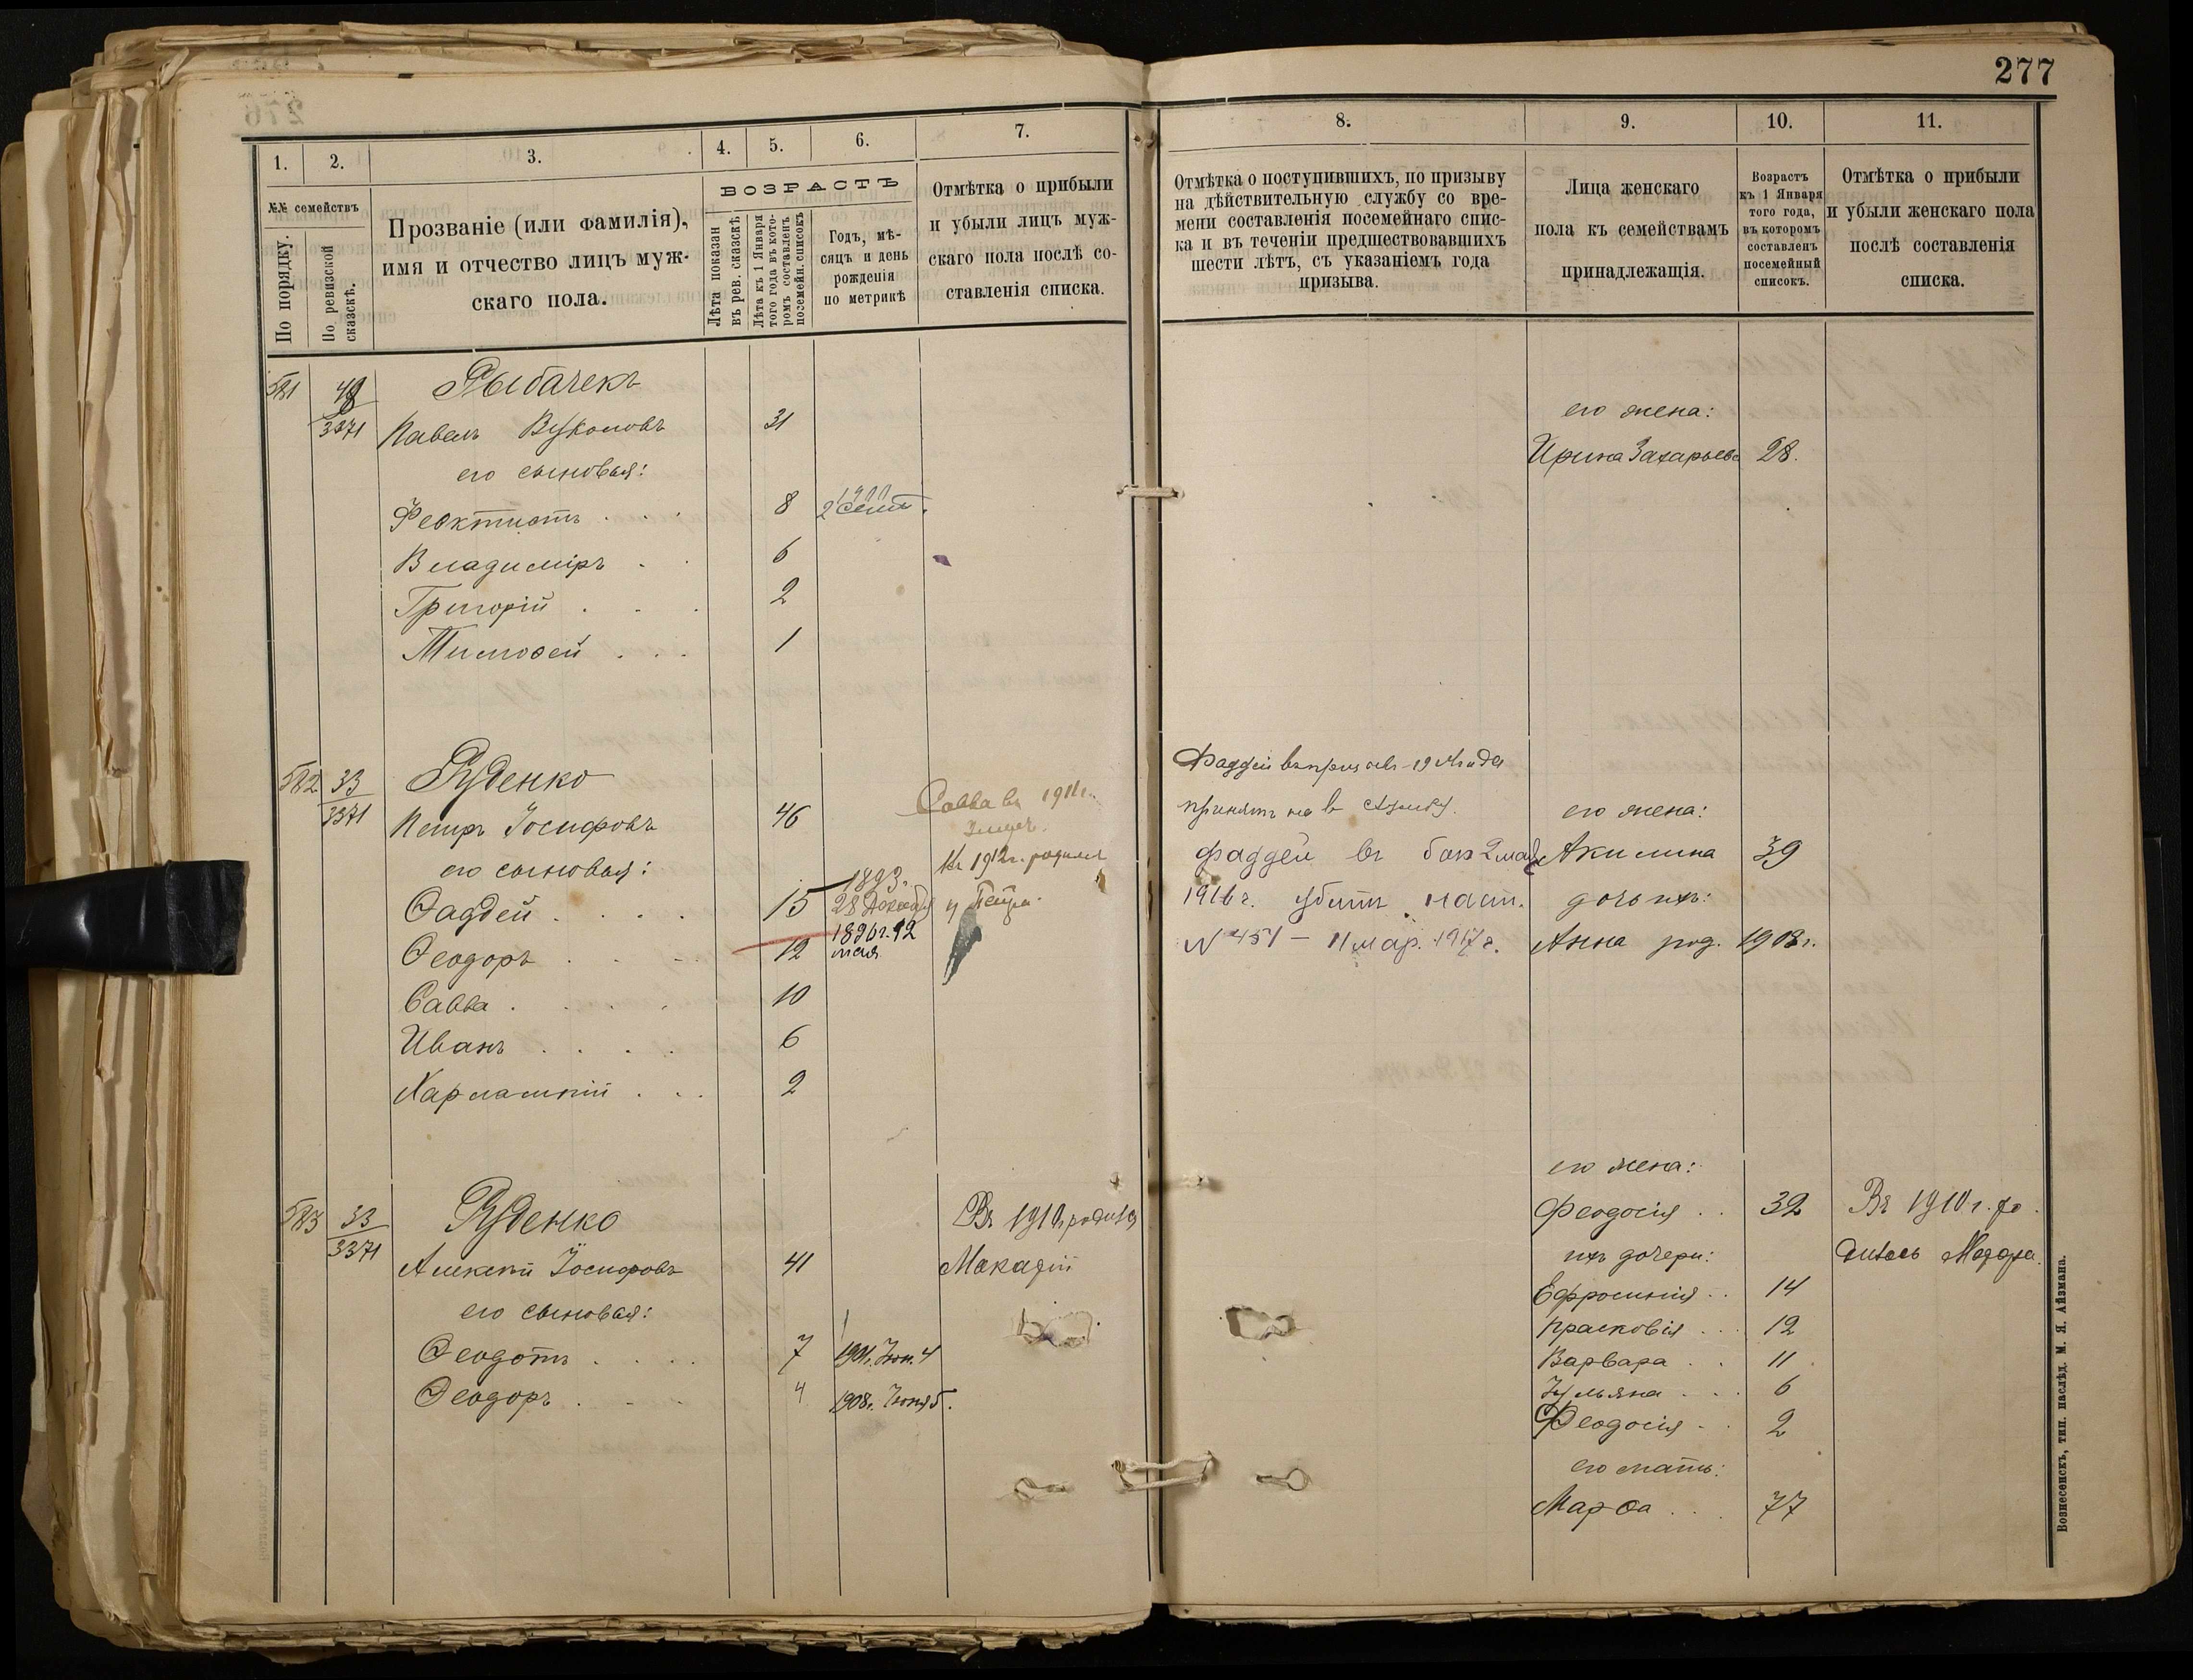 277
1.
2.
3.
4.
5.
6.
7.
8.
9.
10.
11.
№№ семействъ
По порядку.
По ревизской сказскѣ.
Прозваніе (или Фамилія),
имя и отчество лицъ муж-
скаго пола.
ВОЗРАСТЪ
Лѣта показан въ рев. сказскѣ
Лѣта къ 1 Января того года въ кото-ромъ составленъ посемейн. списокъ
Годъ, мѣ-
сяцъ и день
рожденія
по метрикѣ
Отмѣтка о прибыли
и убыли лицъ муж-
скаго пола послѣ со-
ставленія списка.
Отмѣтка о поступившихъ, по призыву
на дѣйствительную службу со вре-
мени составленія посемейнаго спис-
ка и въ теченіи предшествовавшихъ
шести лѣтъ, съ указаніемъ года
призыва.
Лица женскаго
пола къ семействамъ
принадлежащія.
Возрастъ
къ 1 Января
того года,
въ которомъ
составленъ
посемейный
списокъ.
Отмѣтка о прибыли
и убыли женскаго пола
послѣ составленія
списка.
581 Рыбачекъ
3371 Павелъ 31
его жена:
Ирина Захарьева 28.
его сыновья:
Феоктистъ 8 1900 2 Сент.
Владиміръ 6
Григорій 2
Тимофей 1
582 33/3371 Руденко
Петръ Іосифовъ 46
Савва въ 1911 г.
Въ 1912 г. родился
у Петра
Фаддей
принятъ
Фаддей въ бою 2 мая
1916 г. убитъ
№ 451 – 11 мар. 1917 г.
его жена:
Акилина 39
дочь ихъ:
Анна род. 1908 г.
его сыновья:
Ѳаддей 15 1893. 28 Декаб
Ѳеодоръ 12 1896 г. 12 мая
Савва 10
Иванъ 6
Харлампій 2
583 33/3371 Руденко
Алексѣй Іосифовъ 41
Въ 1910 родился
Макарій
его жена:
Феодосія 32
Въ 1910 г. ро
дилась
ихъ дочери:
Ефросинія 14
Прасковія 12
Варвара 11
Іульяна 6
Феодосія 2
его мать:
Марѳа 77
его сыновья:
Ѳеодотъ 7 1901. Іюн. 4
Ѳеодоръ 4 1908. Іюня 5.
Вознесенскъ, тип. наслѣд. М. Я. Айзмана.